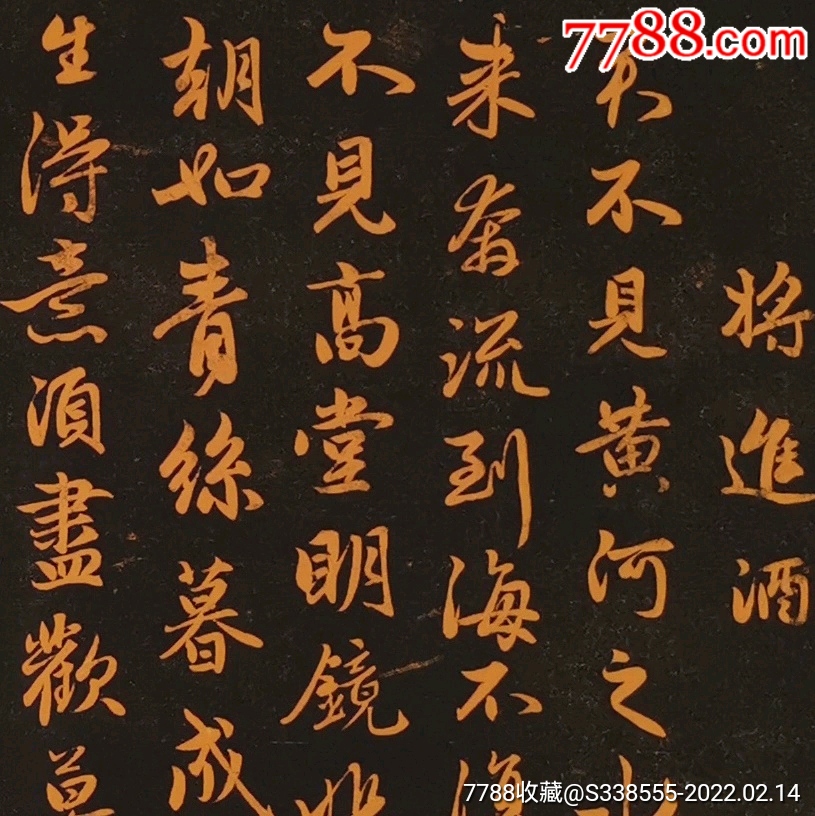 7788.com
将進酒
不見黄河之水
来奔流到海不復
不見高堂明鏡悲
朝如青絲暮成
生得意須盡歡莫
7788收藏@S338555-2022.02.14